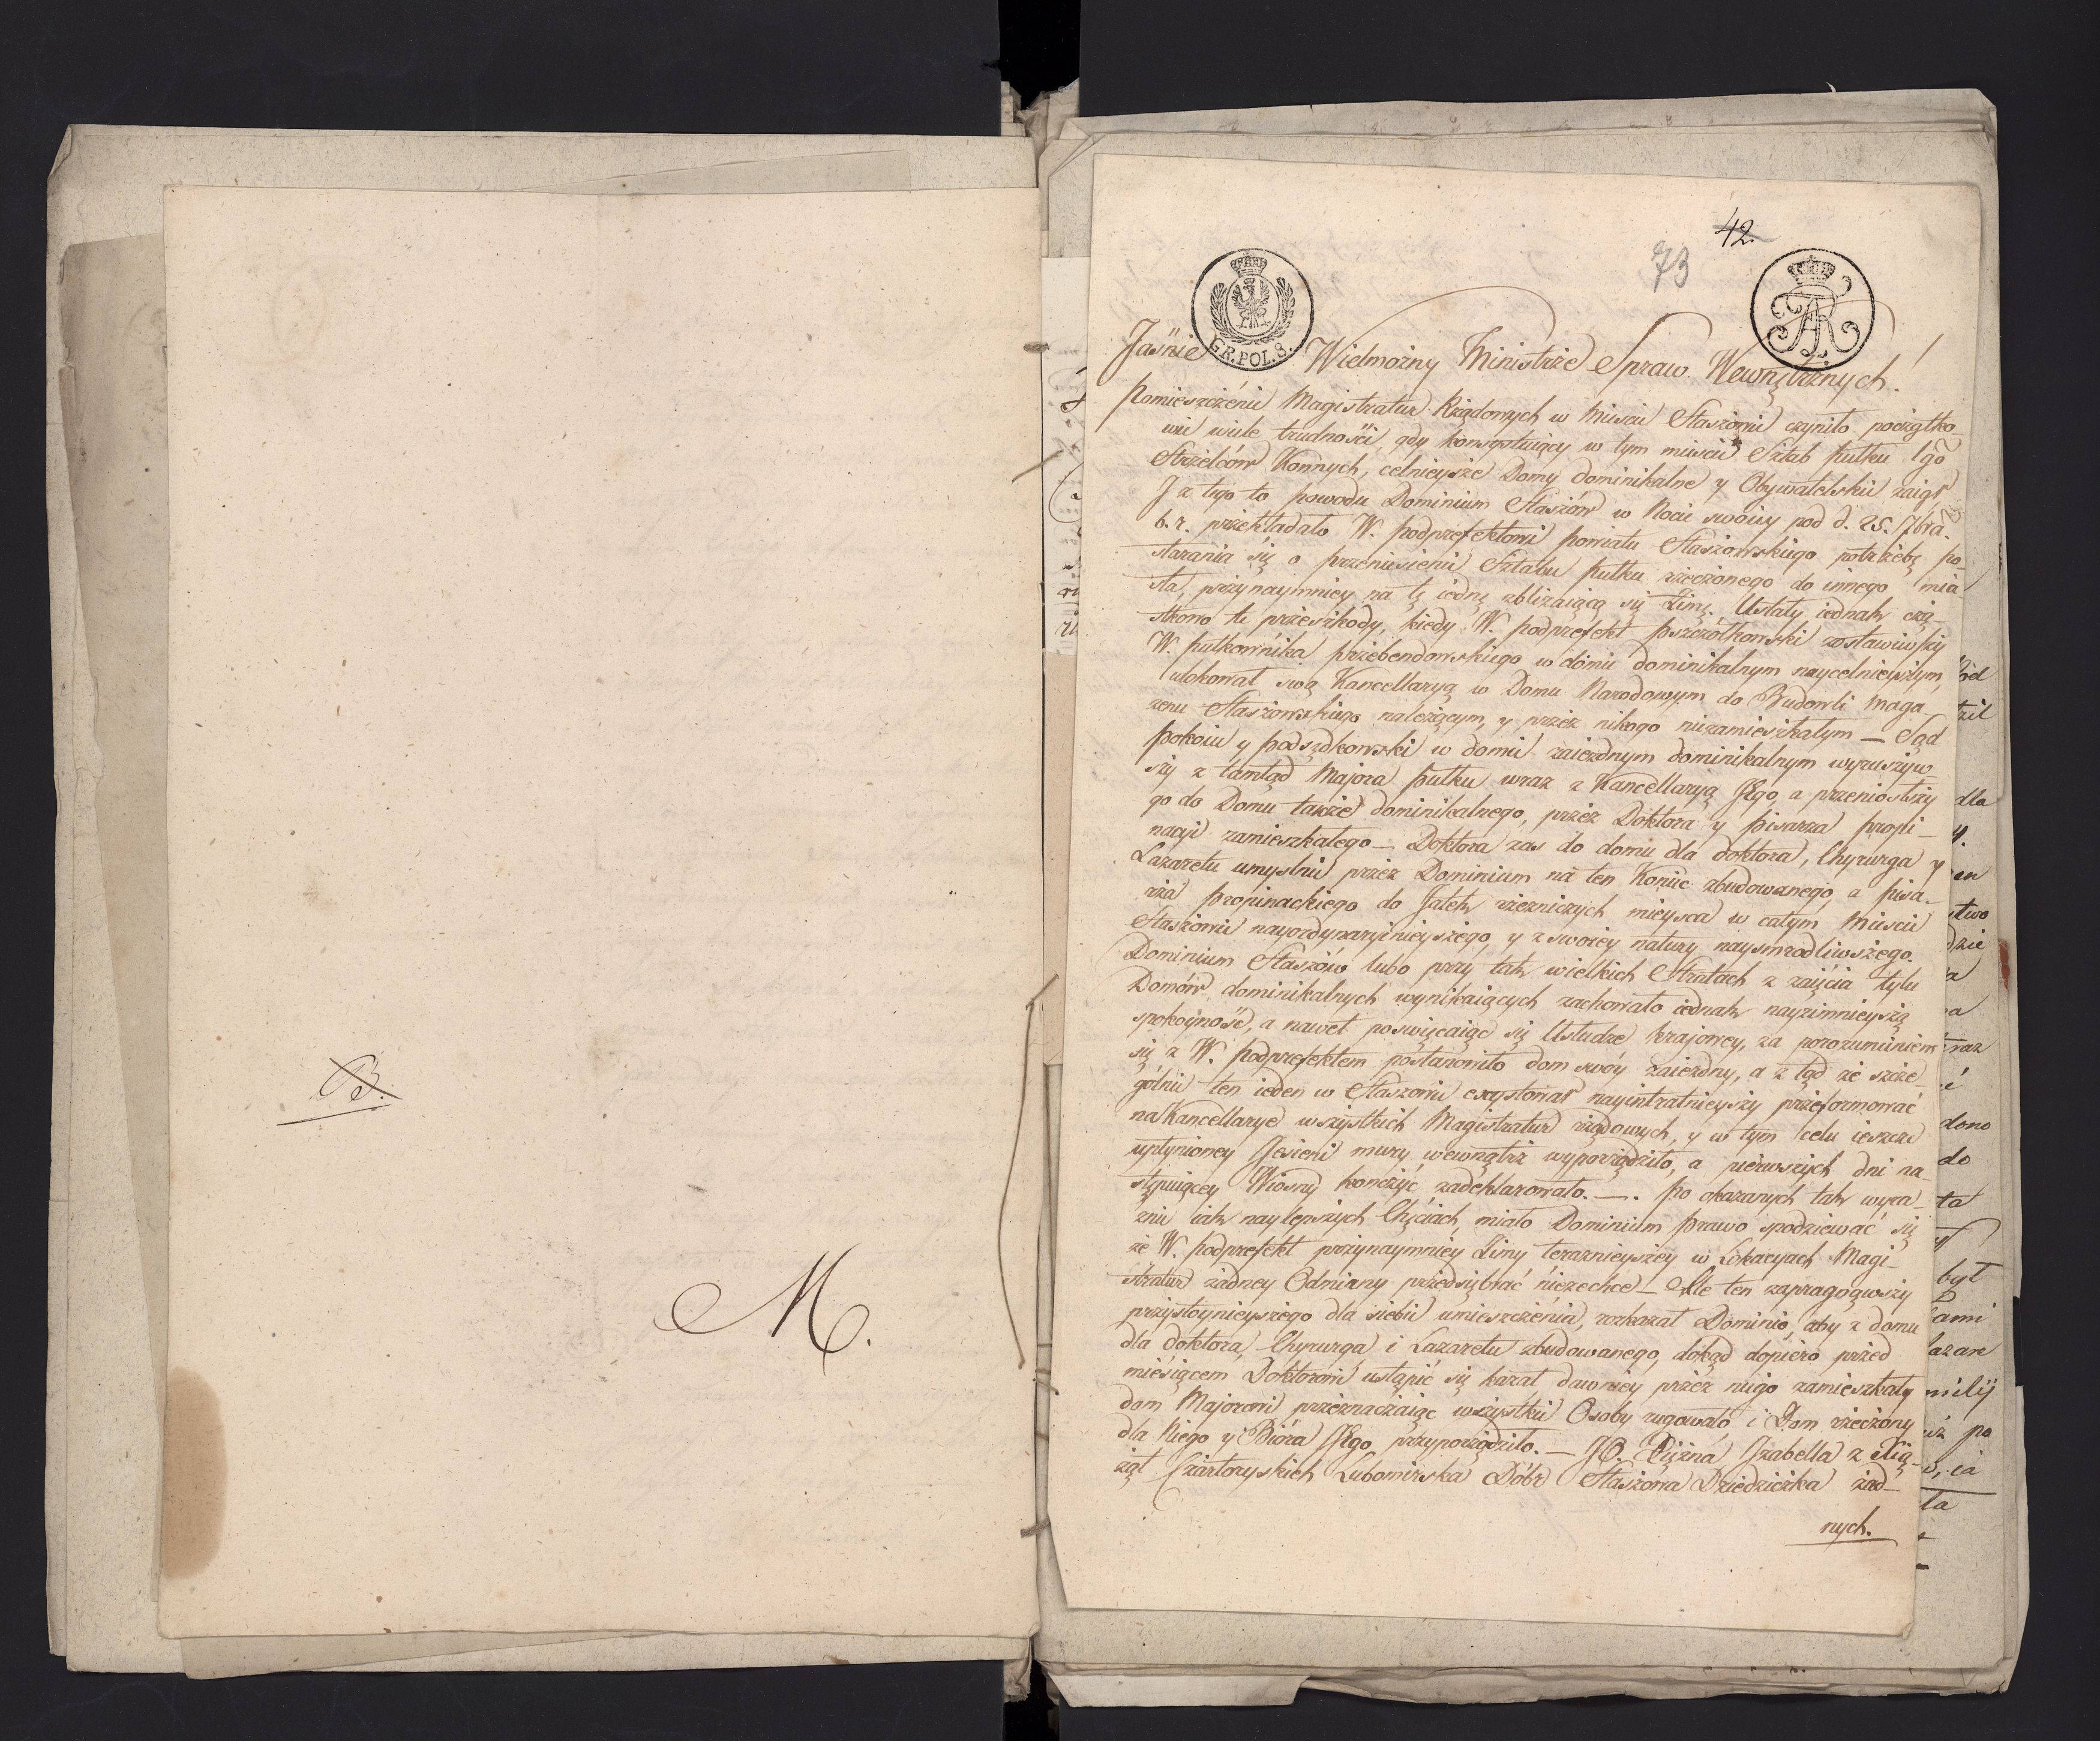 B.
M.
42.
73
G.R.POL.8.
Jaśnie Wielmożny Ministrze Spraw Wewnętrznych!
Pomieszczenie Magistratur Rządowych w Mieście Staszowie czyniło początko-
wie wiele trudności, gdy konsystuiący w tym mieście Sztab Pułku 1go
Strzelców Konnych, celnieysze Domy dominikalne y Obywatelskie zaiął.
J z tego to powodu Dominium Staszów w Nocie swoiey pod d. 25. 7bra.
b. r. przekładało W. Podprefektowi Powiatu Staszowskiego potrzebę po-
starania się o przeniesienie Sztabu Pułku rzeczonego do innego mia-
sta, przynaymniey na tę iednę zbliżaiącą się Zimę. Ustały iednak czą-
stkowo te przeszkody, kiedy W. Podprefekt Pszczółkowski zostawiwszy
W. Pułkownika Przebendowskiego w domie dominikalnym naycelnieyszym,
ulokował swą Kancellaryą w Domu Narodowym do Budowli Maga-
zenu Staszowskiego należącym, y przez nikogo niezamieszkałym — Sąd
Pokoiu y Podsędkowski w domie zaiezdnym dominikalnym wyruszyw-
szy z tamtąd Majora Pułku wraz z Kancellaryą JEgo, a przeniosłszy
go do Domu także dominikalnego, przez Doktora y Pisarza Propi-
nacyi zamieszkałego — Doktora zas do domu dla doktora, Chyrurga y
Lazaretu umyslnie przez Dominium na ten Koniec zbudowanego, a Pisa-
rza Propinackiego do Jatek rzezniczych mieysca w całym Mieście
Staszowie nayordynaryinieyszego, y z swoiey natury naysmrodliwszego.
Dominium Staszów lubo przy tak wielkich Stratach z zaięcia tylu
Domów dominikalnych wynikaiących zachowało iednak nayzimnieyszą
spokoyność, a nawet poswięcaiąc się Usłudze krajowey, za porozumieniem
się z W. Podprefektem postanowiło dom swóy zaiezdny, a z tąd że szcze-
gólnie ten ieden w Staszowie exystował nayintratnieyszy przeformować
na Kancellarye wszystkich Magistratur rządowych, y w tym celu ieszcze
upłynioney Jesieni mury wewnątrz wyporządziło, a pierwszych dni na-
stępuiącey Wiosny kończyć zadeklarowało. —. Po okazanych tak wyra-
znie iak naylepszych Chęciach, miało Dominium Prawo spodziewać się
że W. Podprefekt przynaymniey Zimy teraznieyszey w Lokacyach Magi-
stratur żadney Odmiany przedsiębrać niezechce — Ale ten zapragnąwszy
przystoynieyszego dla siebie umieszczenia, rozkazał Dominio, aby z domu
dla doktora, Chyrurga i Lazaretu zbudowanego, dokąd dopiero przed
miesiącem Doktorowi ustąpić się kazał dawniey przez niego zamieszkały
dom Majorowi przeznaczaiąc wszystkie Osoby rugowało i Dom rzeczony
dla Niego y Bióra JEgo przyporządziło. — JO. Xiężna Jzabella z Xią-
żąt Czartoryskich Lubomirska Dóbr Staszowa Dziedziczka żad-
nych.